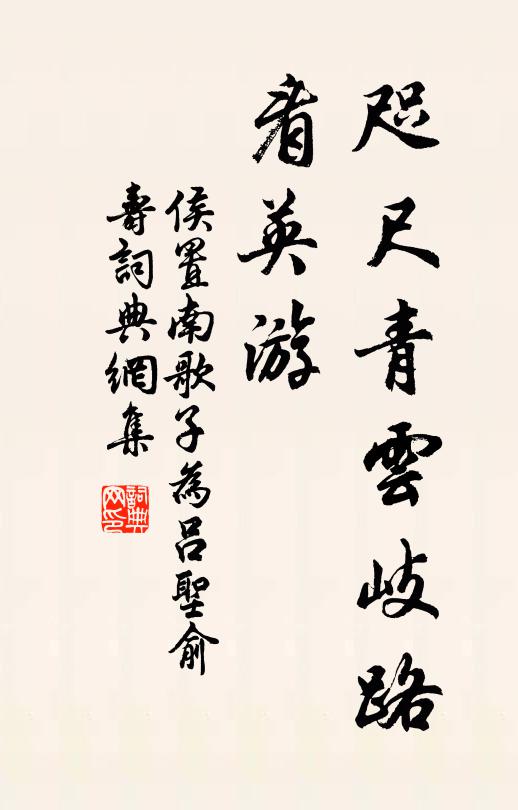 咫尺青雲歧路
看英游
侯置南歌子為呂聖俞
壽詞典網集
詞典网印